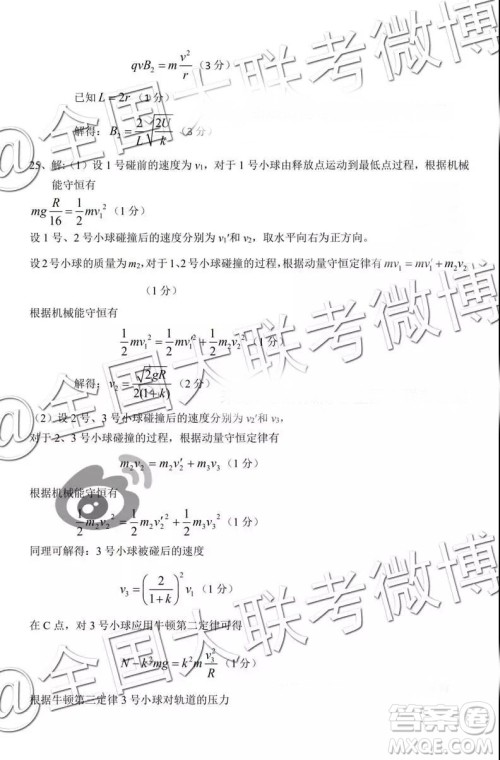 qvB₂ = m v²/r （3 分）
已知 L = 2r （1 分）
解得：B₂ = 2/L √(2U/k) （3 分）
25、解：（1）设 1 号碰前的速度为 v₁，对于 1 号小球由释放点运动到最低点过程，根据机械
能守恒有
mg R/16 = 1/2 mv₁² （1 分）
设 1 号、2 号小球碰撞后的速度分别为 v₁′和 v₂，取水平向右为正方向。
设 2 号小球的质量为 m₂，对于 1、2 号小球碰撞的过程，根据动量守恒定律有 mv₁ = mv₁′ + m₂v₂
（1 分）
根据机械能守恒有
1/2 mv₁² = 1/2 mv₁′² + 1/2 m₂v₂²
解得：v₂ = √(2gR)/2(1+k) （2 分）
（2）设 2 号、3 号小球碰撞后的速度分别为 v₂′和 v₃，
对于 2、3 号小球碰撞的过程，根据动量守恒定律有
m₂v₂ = m₂v₂′ + m₃v₃ （1 分）
根据机械能守恒有
1/2 m₂v₂² = 1/2 m₂v₂′² + 1/2 m₃v₃² （1 分）
同理可解得：3 号小球被碰后的速度
v₃ = (2/(1+k))² v₁ （1 分）
在 C 点，对 3 号小球应用牛顿第二定律可得
N − k²mg = k²m v₃²/R （1 分）
根据牛顿第三定律 3 号小球对轨道的压力
@全国大联考微博
@全国大联考微博
@全国大联考微博
答案圈
MXQE.COM